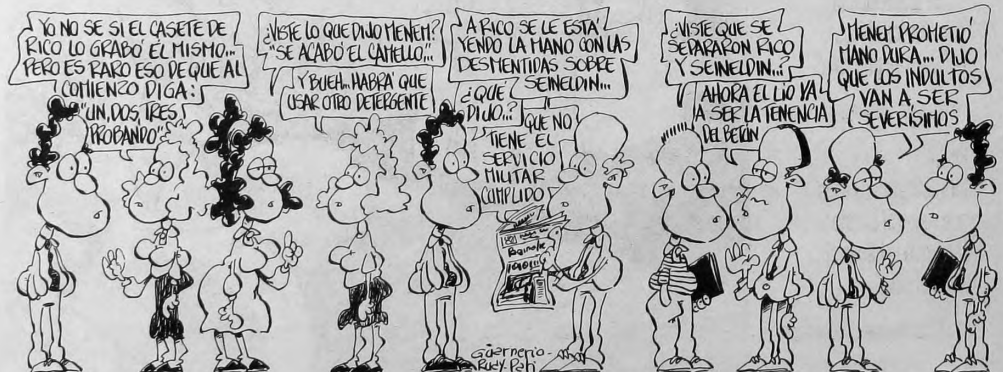 YO NO SE SI EL CASETE DE
RICO LO GRABÓ ÉL MISMO...
PERO ES RARO ESO DE QUE AL
COMIENZO DIGA:
"UN, DOS, TRES
PROBANDO"
¿VISTE LO QUE DIJO MENEM?
"SE ACABÓ EL CAMELLO"...
Y BUEH... HABRÁ QUE
USAR OTRO DETERGENTE
A RICO SE LE ESTÁ
YENDO LA MANO CON LAS
DESMENTIDAS SOBRE
SEINELDIN...
¿QUE
DIJO...?
QUE NO
TIENE EL
SERVICIO
MILITAR
CUMPLIDO
¿VISTE QUE SE
SEPARARON RICO
Y SEINELDIN...?
AHORA EL LÍO VA
A SER LA TENENCIA
DEL BETÚN
MENEM PROMETIÓ
MANO DURA... DIJO
QUE LOS INDULTOS
VAN A SER
SEVERÍSIMOS
Guarnerio-
Rudy-Pati